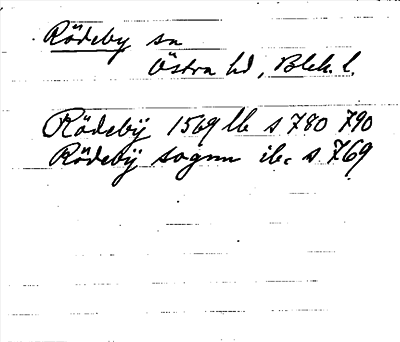 Rödeby sn
Östra hd, Blek. l.
Rödebÿ 1569 lb s 780 790
Rödebÿ sognn ib. s 769